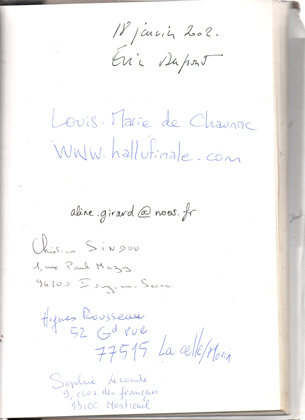 18 janvier 2002.
Éric Dupont
Louis-Marie de Chaunac
www.hallufinale.com
aline.girard@noos.fr
Christian
1, rue Paul
94200 Ivry-sur-Seine
Hugues Rousseau
52 Gd rue
77515 La celle/Morin
Sophie Lecomte
9, clos des français
93100 Montreuil